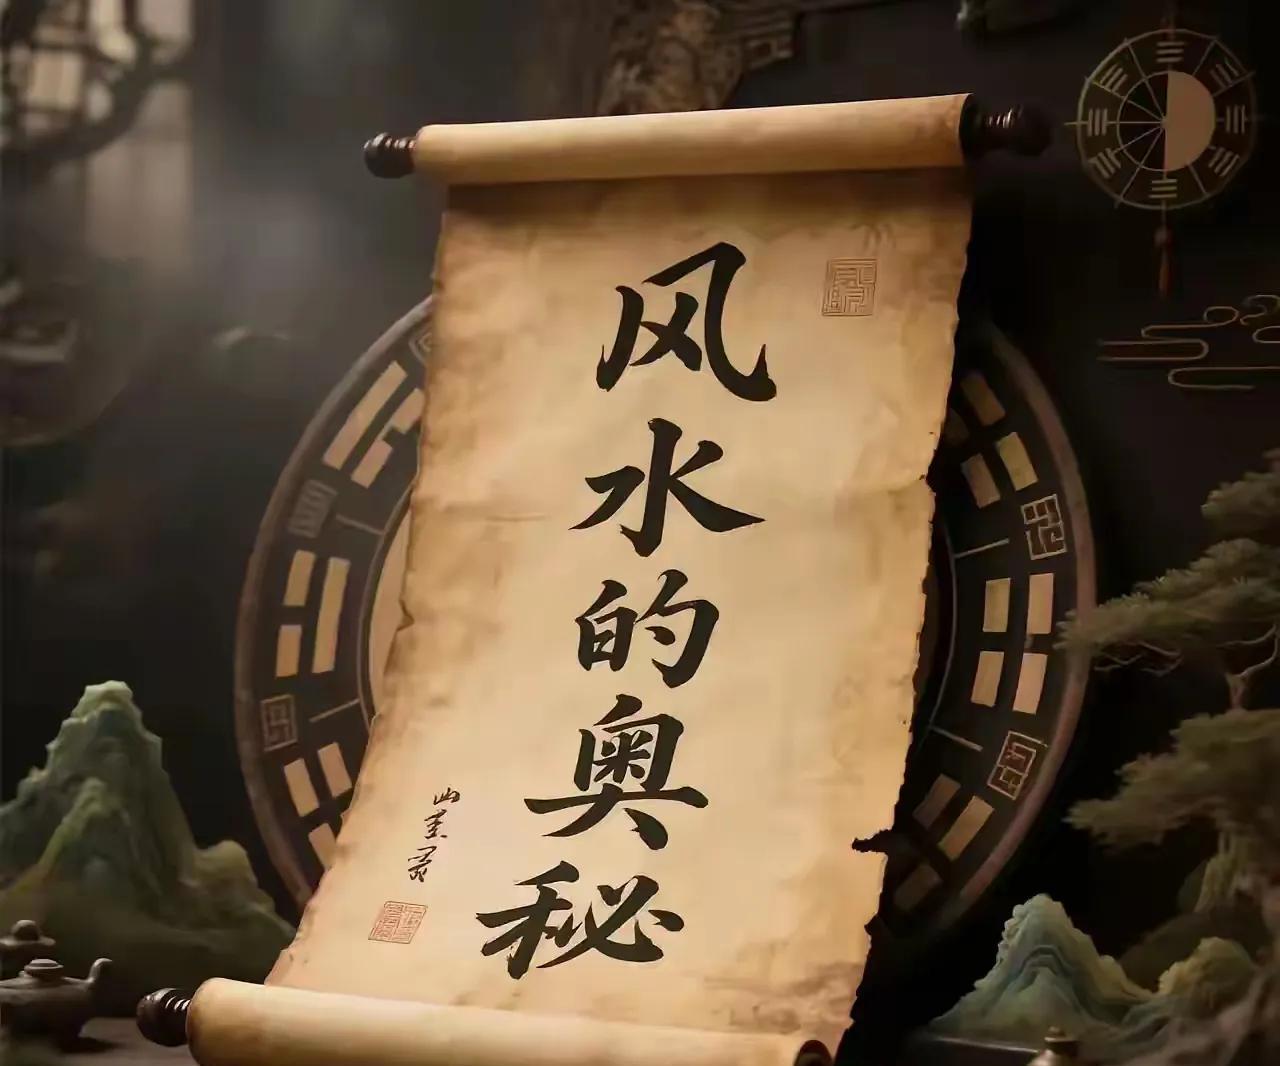 风水的奥秘